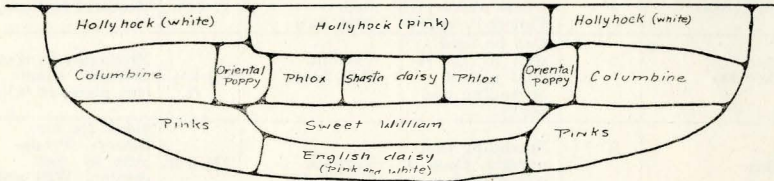 Hollyhock (white) Hollyhock (pink) Hollyhock (white)
Columbine Oriental poppy Phlox Shasta daisy Phlox Oriental poppy Columbine
Pinks Sweet William Pinks
English daisy
(Pink and white)